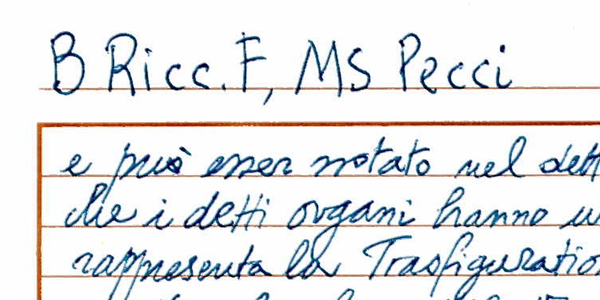 B Ricc. F, MS Pecci
e può esser notato nel dett
che i detti organi hanno u
rappresenta la Trasfiguratio